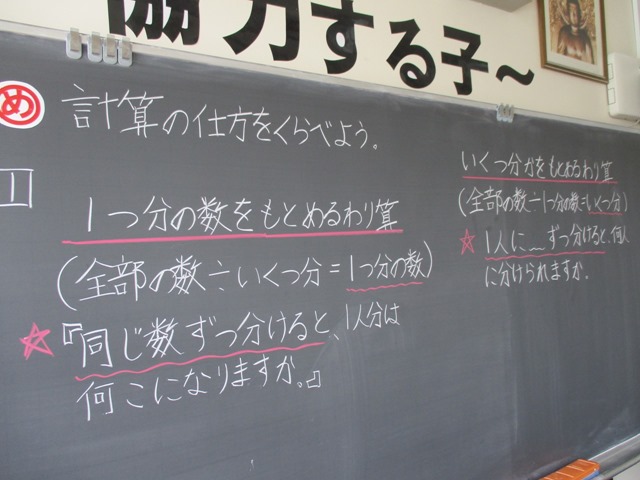 協力する子〜
め 計算の仕方をくらべよう。
1
1つ分の数をもとめるわり算
(全部の数÷いくつ分=1つ分の数)
☆『同じ数ずつ分けると、1人分は
何こになりますか。』
いくつ分かをもとめるわり算
(全部の数÷1つ分の数=いくつ分)
☆ 1人に__ずつ分けると、何人
に分けられますか。